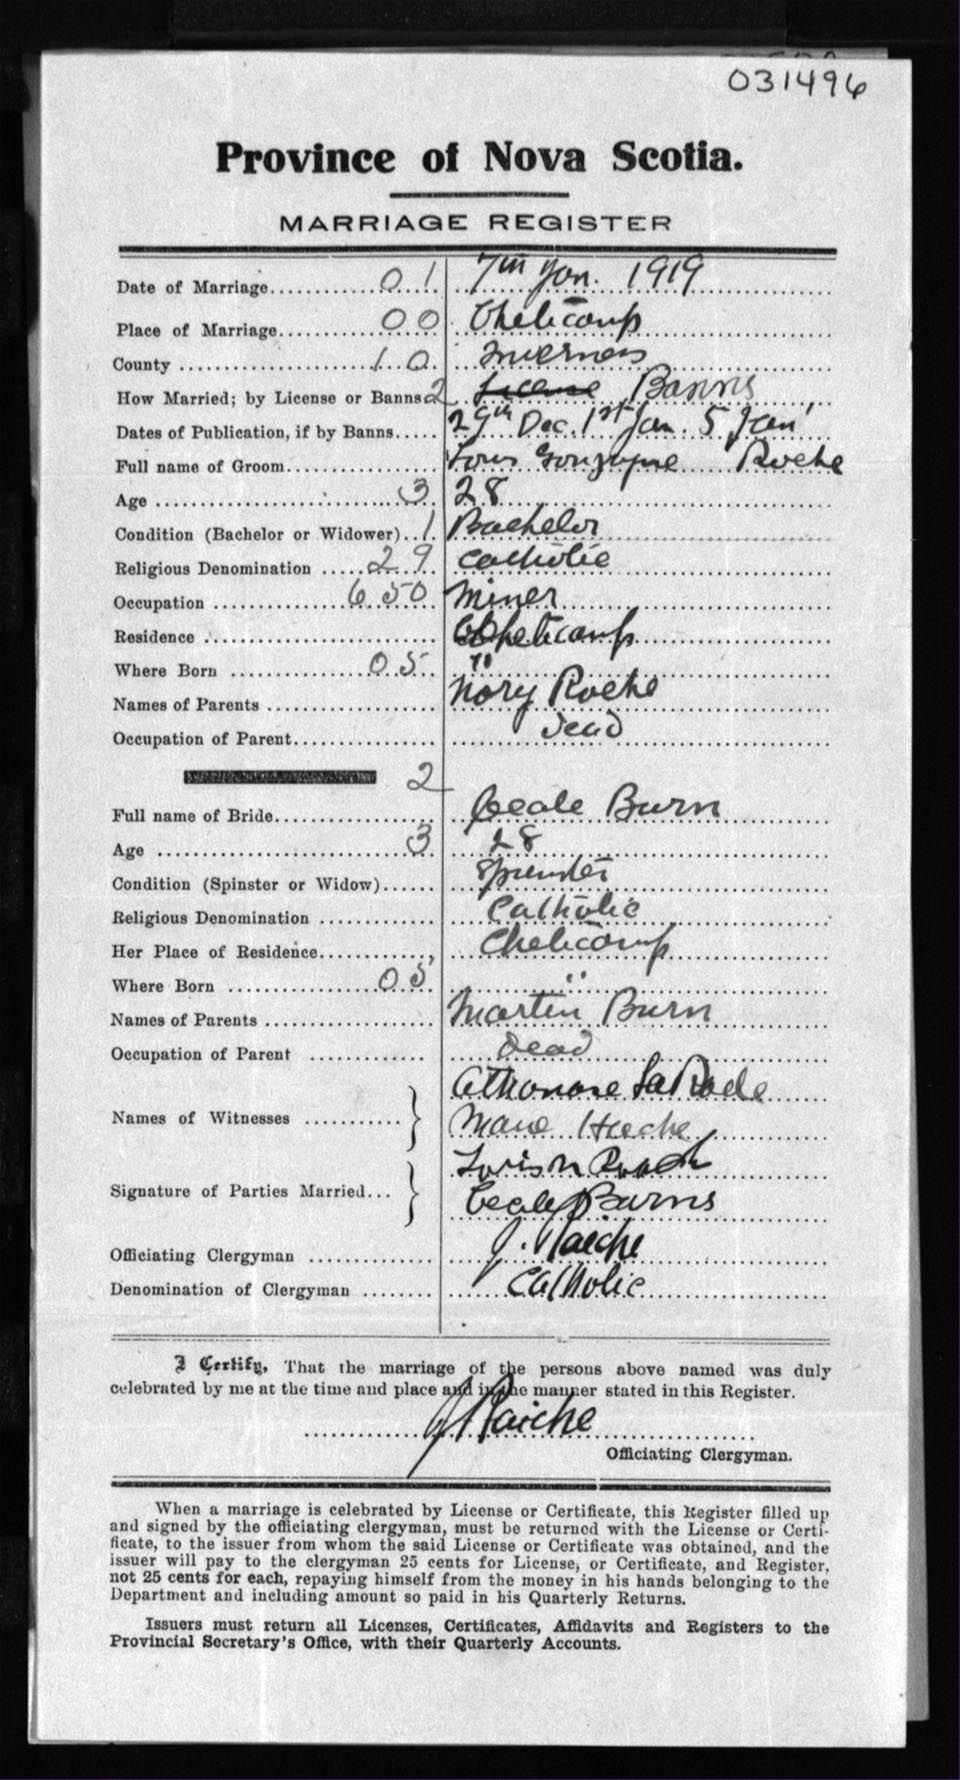 031496
Province of Nova Scotia.
MARRIAGE REGISTER
Date of Marriage 01 7th Jan. 1919
Place of Marriage 00 Cheticamp
County 10 Inverness
How Married; by License or Banns 2 License Banns
Dates of Publication, if by Banns 29th Dec. 1st Jan. 5 Jan
Full name of Groom Louis Roche
Age 3 28
Condition (Bachelor or Widower) 1 Bachelor
Religious Denomination 29 Catholic
Occupation 650 Miner
Residence Cheticamp
Where Born 05 "
Names of Parents Roche
Occupation of Parent Dead
2
Full name of Bride Burn
Age 3 28
Condition (Spinster or Widow) Spinster
Religious Denomination Catholic
Her Place of Residence Cheticamp
Where Born 05 "
Names of Parents Martin Burn
Occupation of Parent Dead
Names of Witnesses
Signature of Parties Married
Burns
Officiating Clergyman J. Raiche
Denomination of Clergyman Catholic
I Certify, That the marriage of the persons above named was duly
celebrated by me at the time and place and in the manner stated in this Register.
J Raiche
Officiating Clergyman.
When a marriage is celebrated by License or Certificate, this Register filled up
and signed by the officiating clergyman, must be returned with the License or Certi-
ficate, to the issuer from whom the said License or Certificate was obtained, and the
issuer will pay to the clergyman 25 cents for License, or Certificate, and Register,
not 25 cents for each, repaying himself from the money in his hands belonging to the
Department and including amount so paid in his Quarterly Returns.
Issuers must return all Licenses, Certificates, Affidavits and Registers to the
Provincial Secretary's Office, with their Quarterly Accounts.